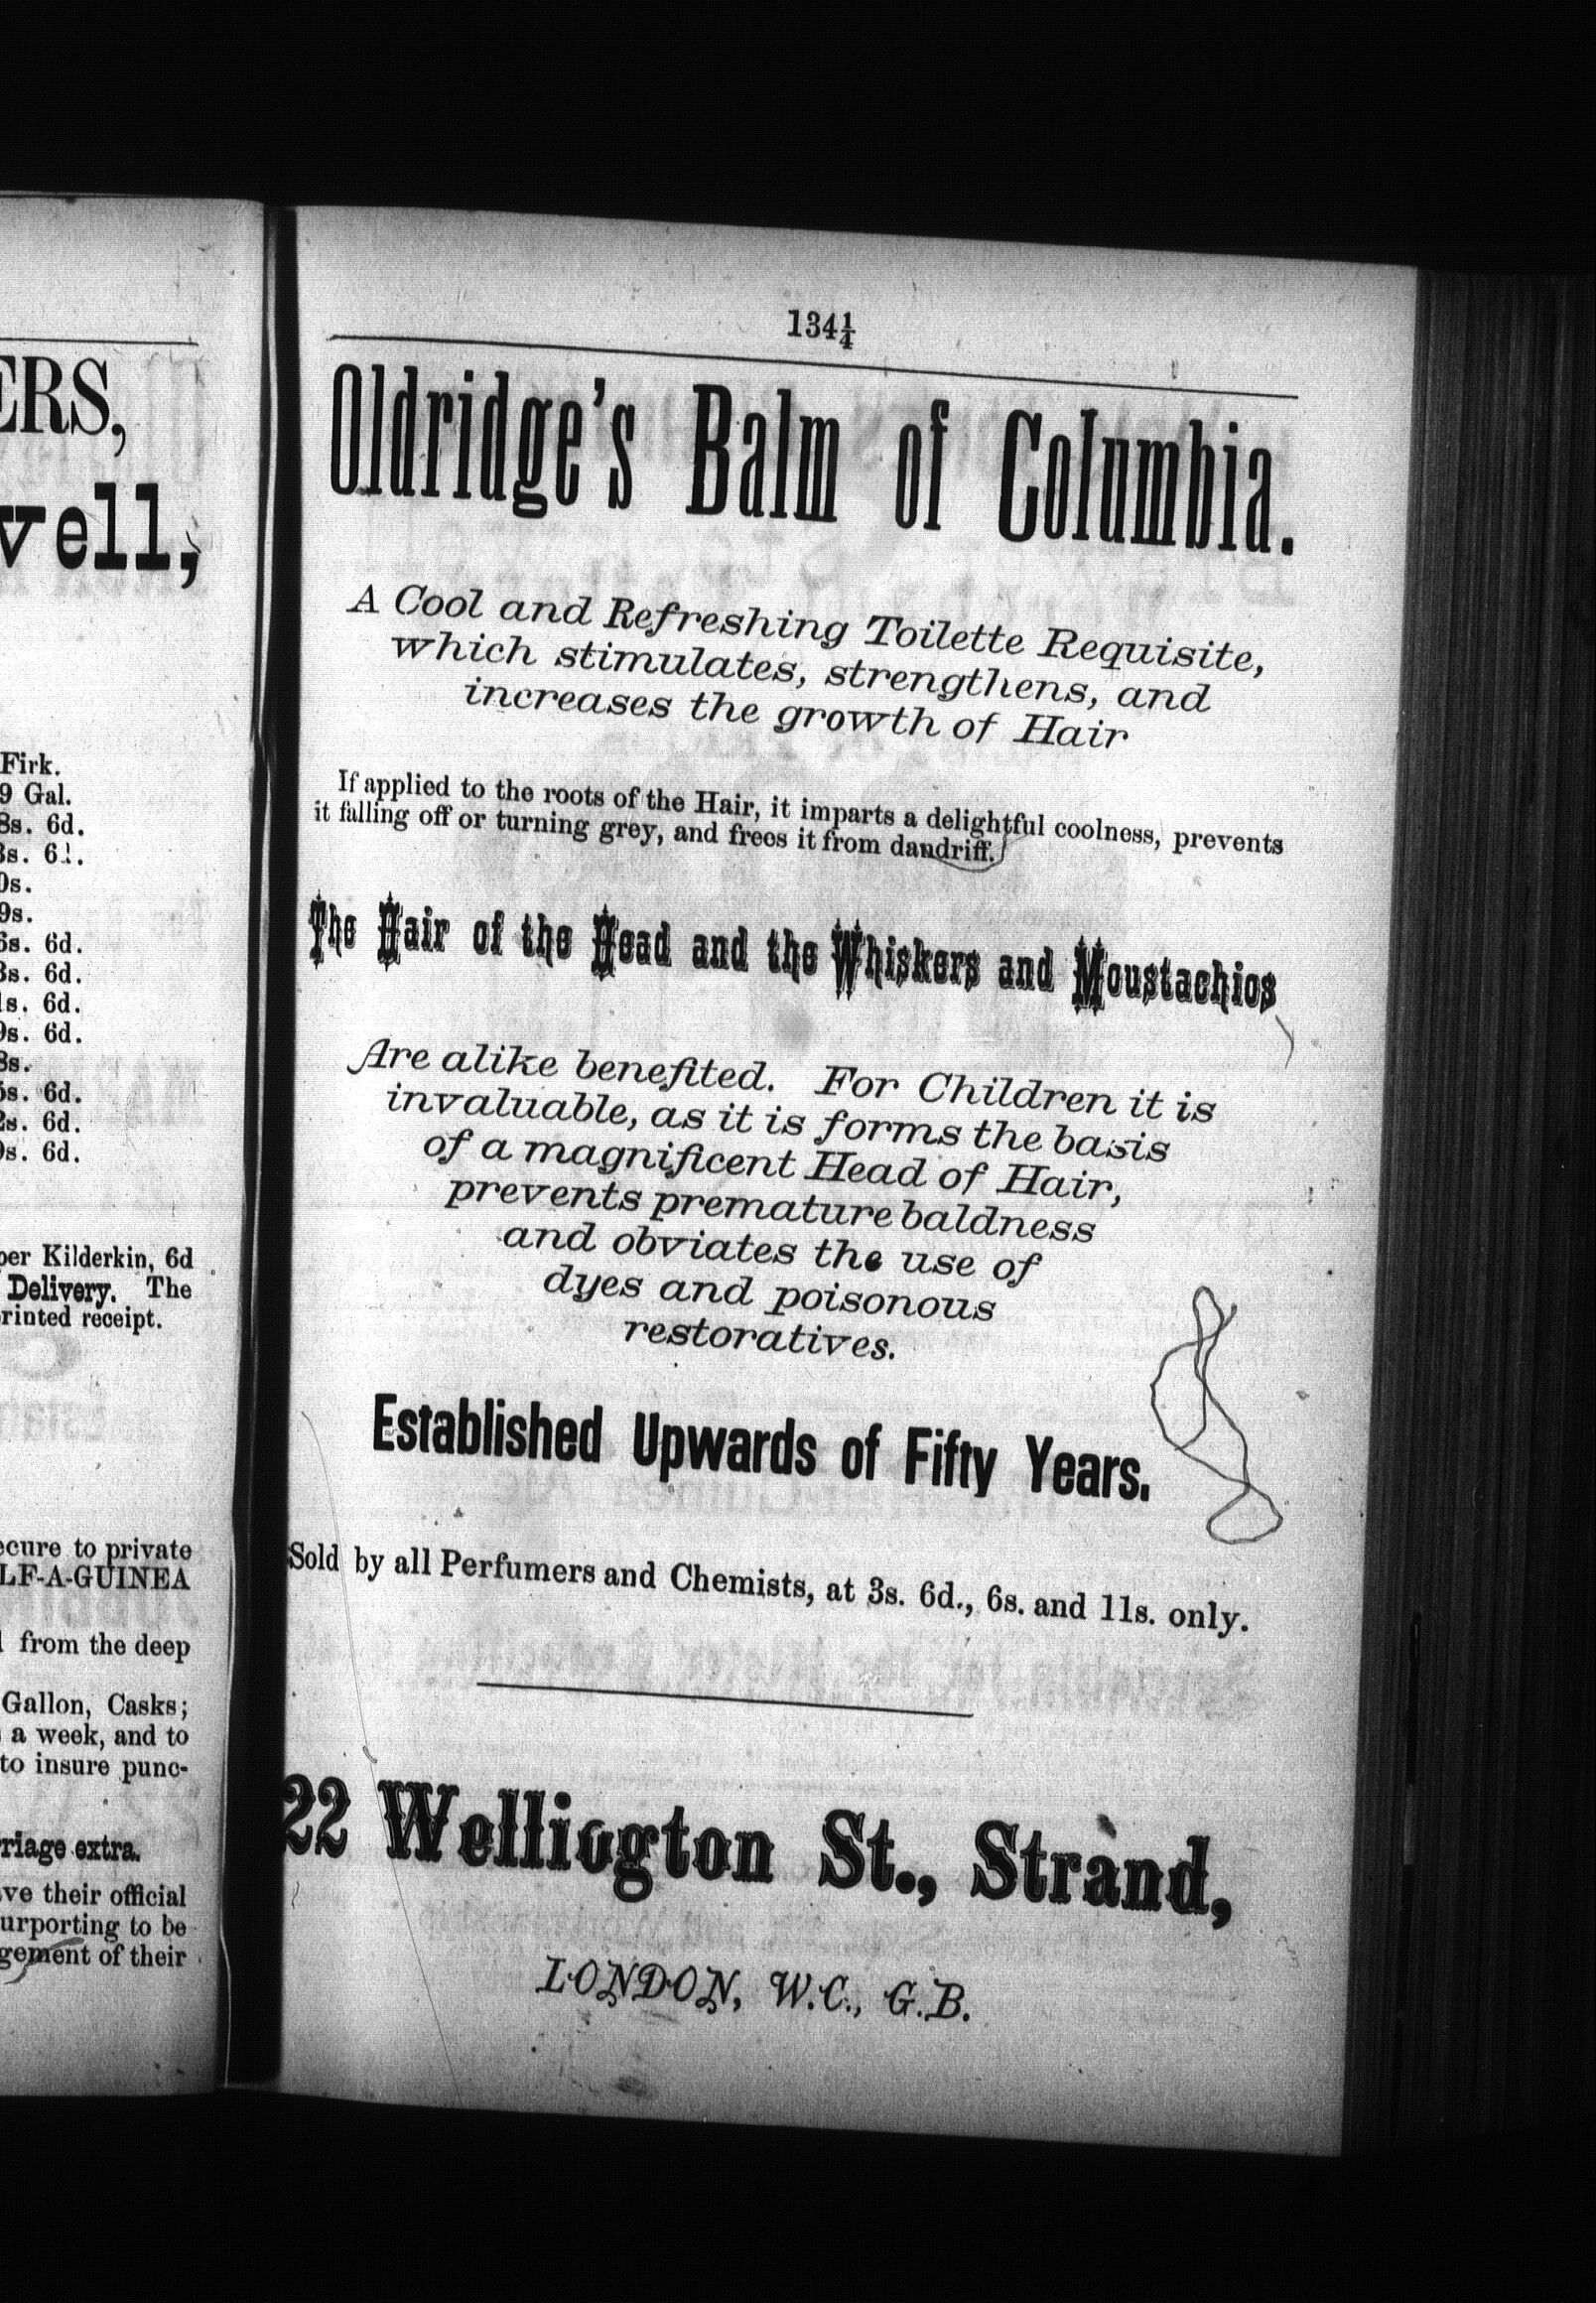 ERS,
vell,
Firk.
9 Gal.
8s. 6d.
3s. 6d.
0s.
9s.
6s. 6d.
3s. 6d.
1s. 6d.
9s. 6d.
8s.
5s. 6d.
2s. 6d.
0s. 6d.
per Kilderkin, 6d
Delivery. The
rinted receipt.
ecure to private
LF-A-GUINEA
from the deep
Gallon, Casks;
a week, and to
to insure punc-
rriage extra.
ve their official
urporting to be
gement of their
134¼
Oldridge's Balm of Columbia.
A Cool and Refreshing Toilette Requisite,
which stimulates, strengthens, and
increases the growth of Hair
If applied to the roots of the Hair, it imparts a delightful coolness, prevents
it falling off or turning grey, and frees it from dandriff.
The Hair of the Head and the Whiskers and Moustachios
Are alike benefited. For Children it is
invaluable, as it is forms the basis
of a magnificent Head of Hair,
prevents premature baldness
and obviates the use of
dyes and poisonous
restoratives.
Established Upwards of Fifty Years.
Sold by all Perfumers and Chemists, at 3s. 6d., 6s. and 11s. only.
22 Wellington St., Strand,
LONDON, W.C., G.B.